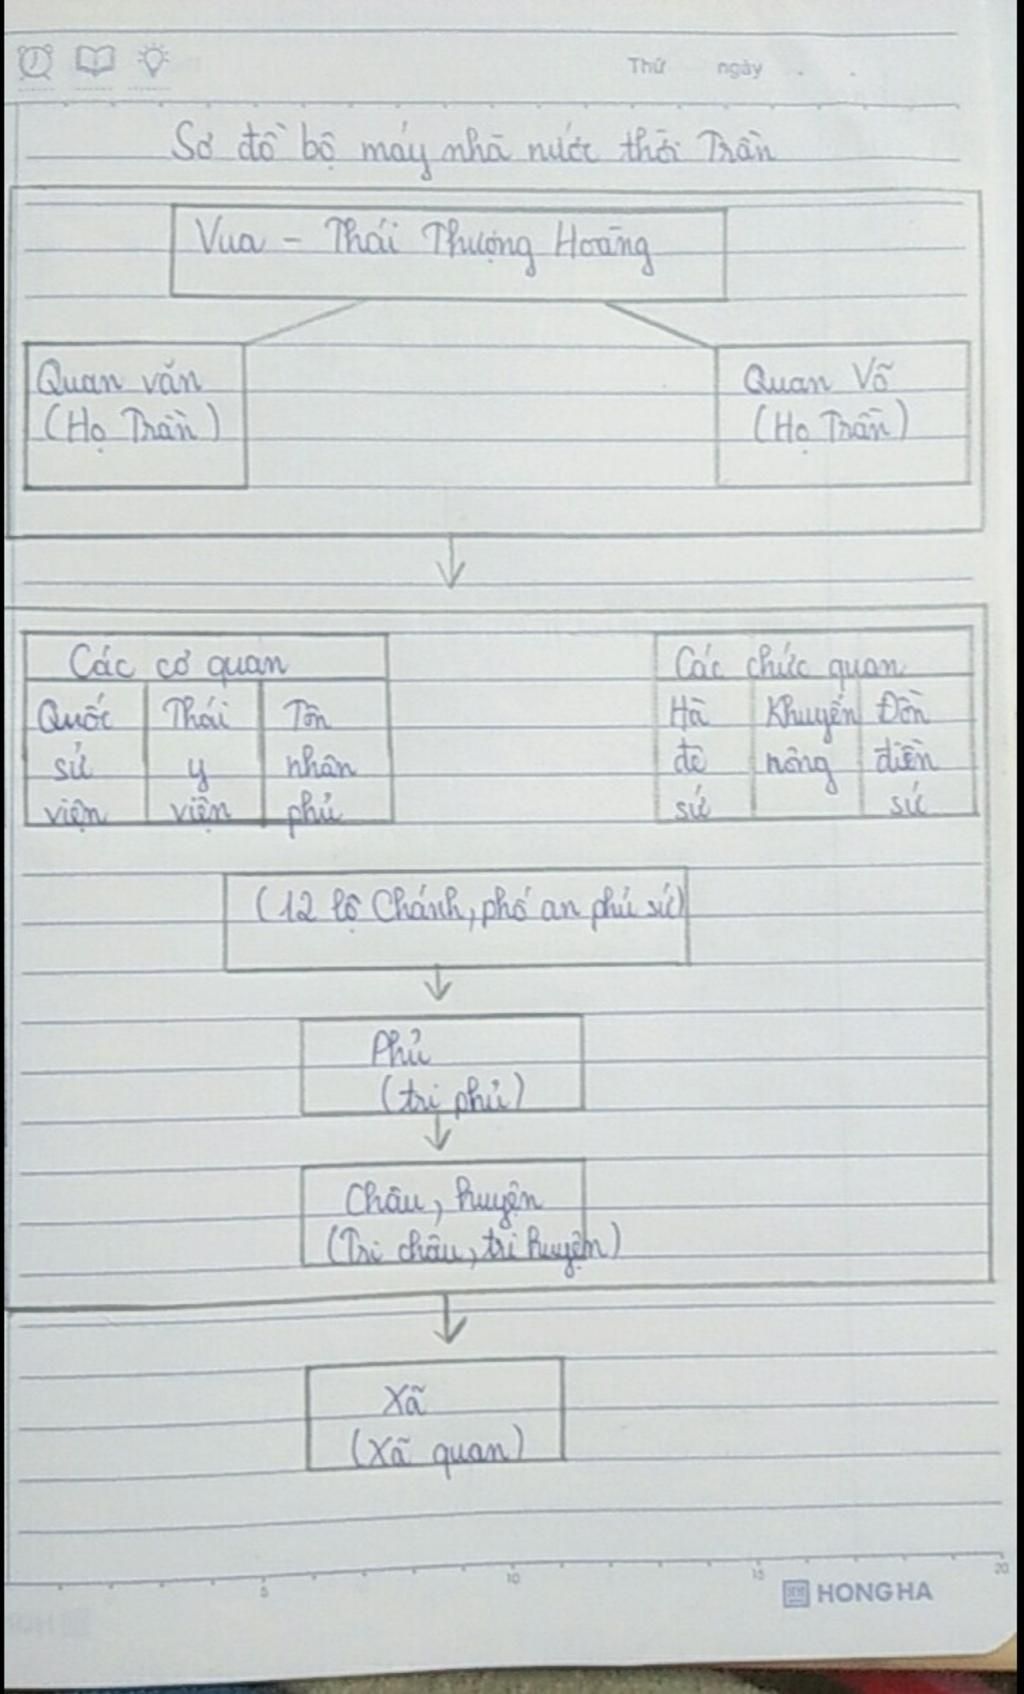 Thứ ngày . .
Sơ đồ bộ máy nhà nước thời Trần
Vua - Thái Thượng Hoàng
Quan văn
(Họ Trần)
Quan Võ
(Họ Trần)
Các cơ quan
Quốc
sử
viện
Thái
y
viện
Tôn
nhân
phủ
Các chức quan
Hà
đê
sứ
Khuyến
nông
Đồn
điền
sứ
(12 lộ Chánh, phó an phủ sứ)
Phủ
(tri phủ)
Châu, huyện
(Tri châu, tri huyện)
Xã
(Xã quan)
5 10 15 20
HONG HA